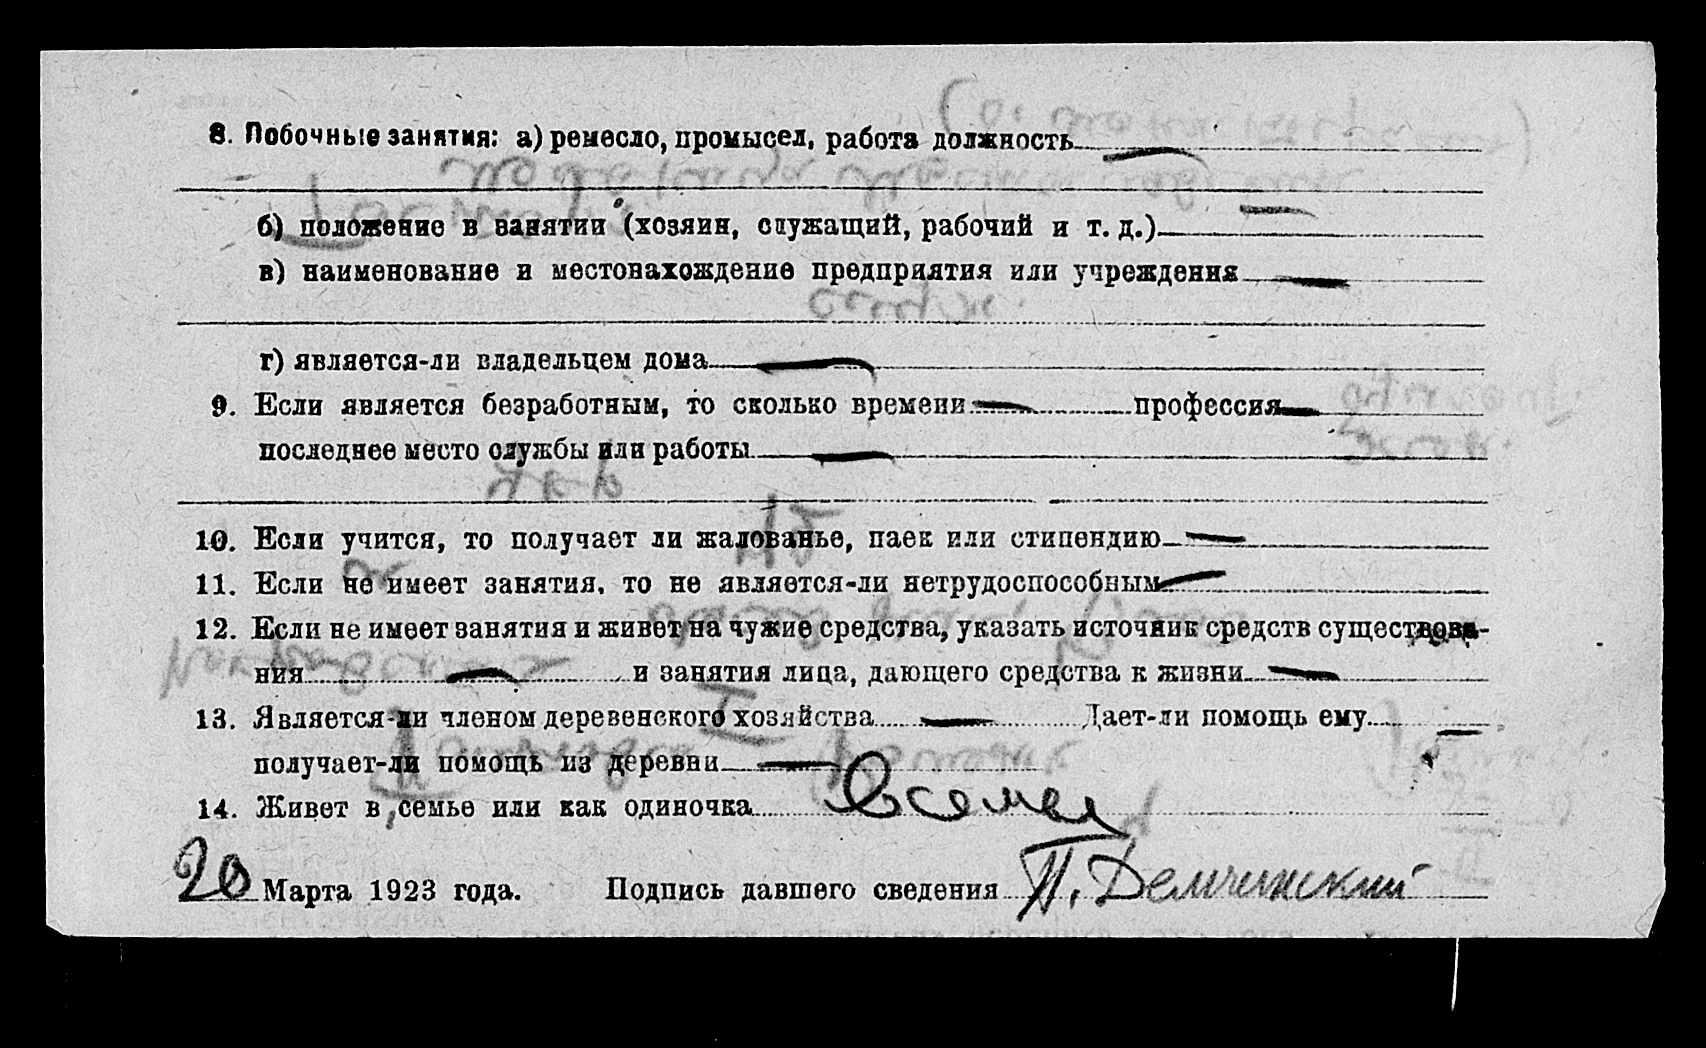 8. Побочные занятия: а) ремесло, промысел, работа должность
б) положение в занятии (хозяин, служащий, рабочий и т. д.)
в) наименование и местонахождение предприятия или учреждения
г) является-ли владельцем дома
9. Если является безработным, то сколько времени профессия
последнее место службы или работы
10. Если учится, то получает ли жалованье, паек или стипендию
11. Если не имеет занятия, то не является-ли нетрудоспособным
12. Если не имеет занятия и живет на чужие средства, указать источник средств существова-
ния и занятия лица, дающего средства к жизни
13. Является-ли членом деревенского хозяйства Дает-ли помощь ему
получает-ли помощь из деревни
14. Живет в семье или как одиночка в семье
20 Марта 1923 года. Подпись давшего сведения П. Демчинский